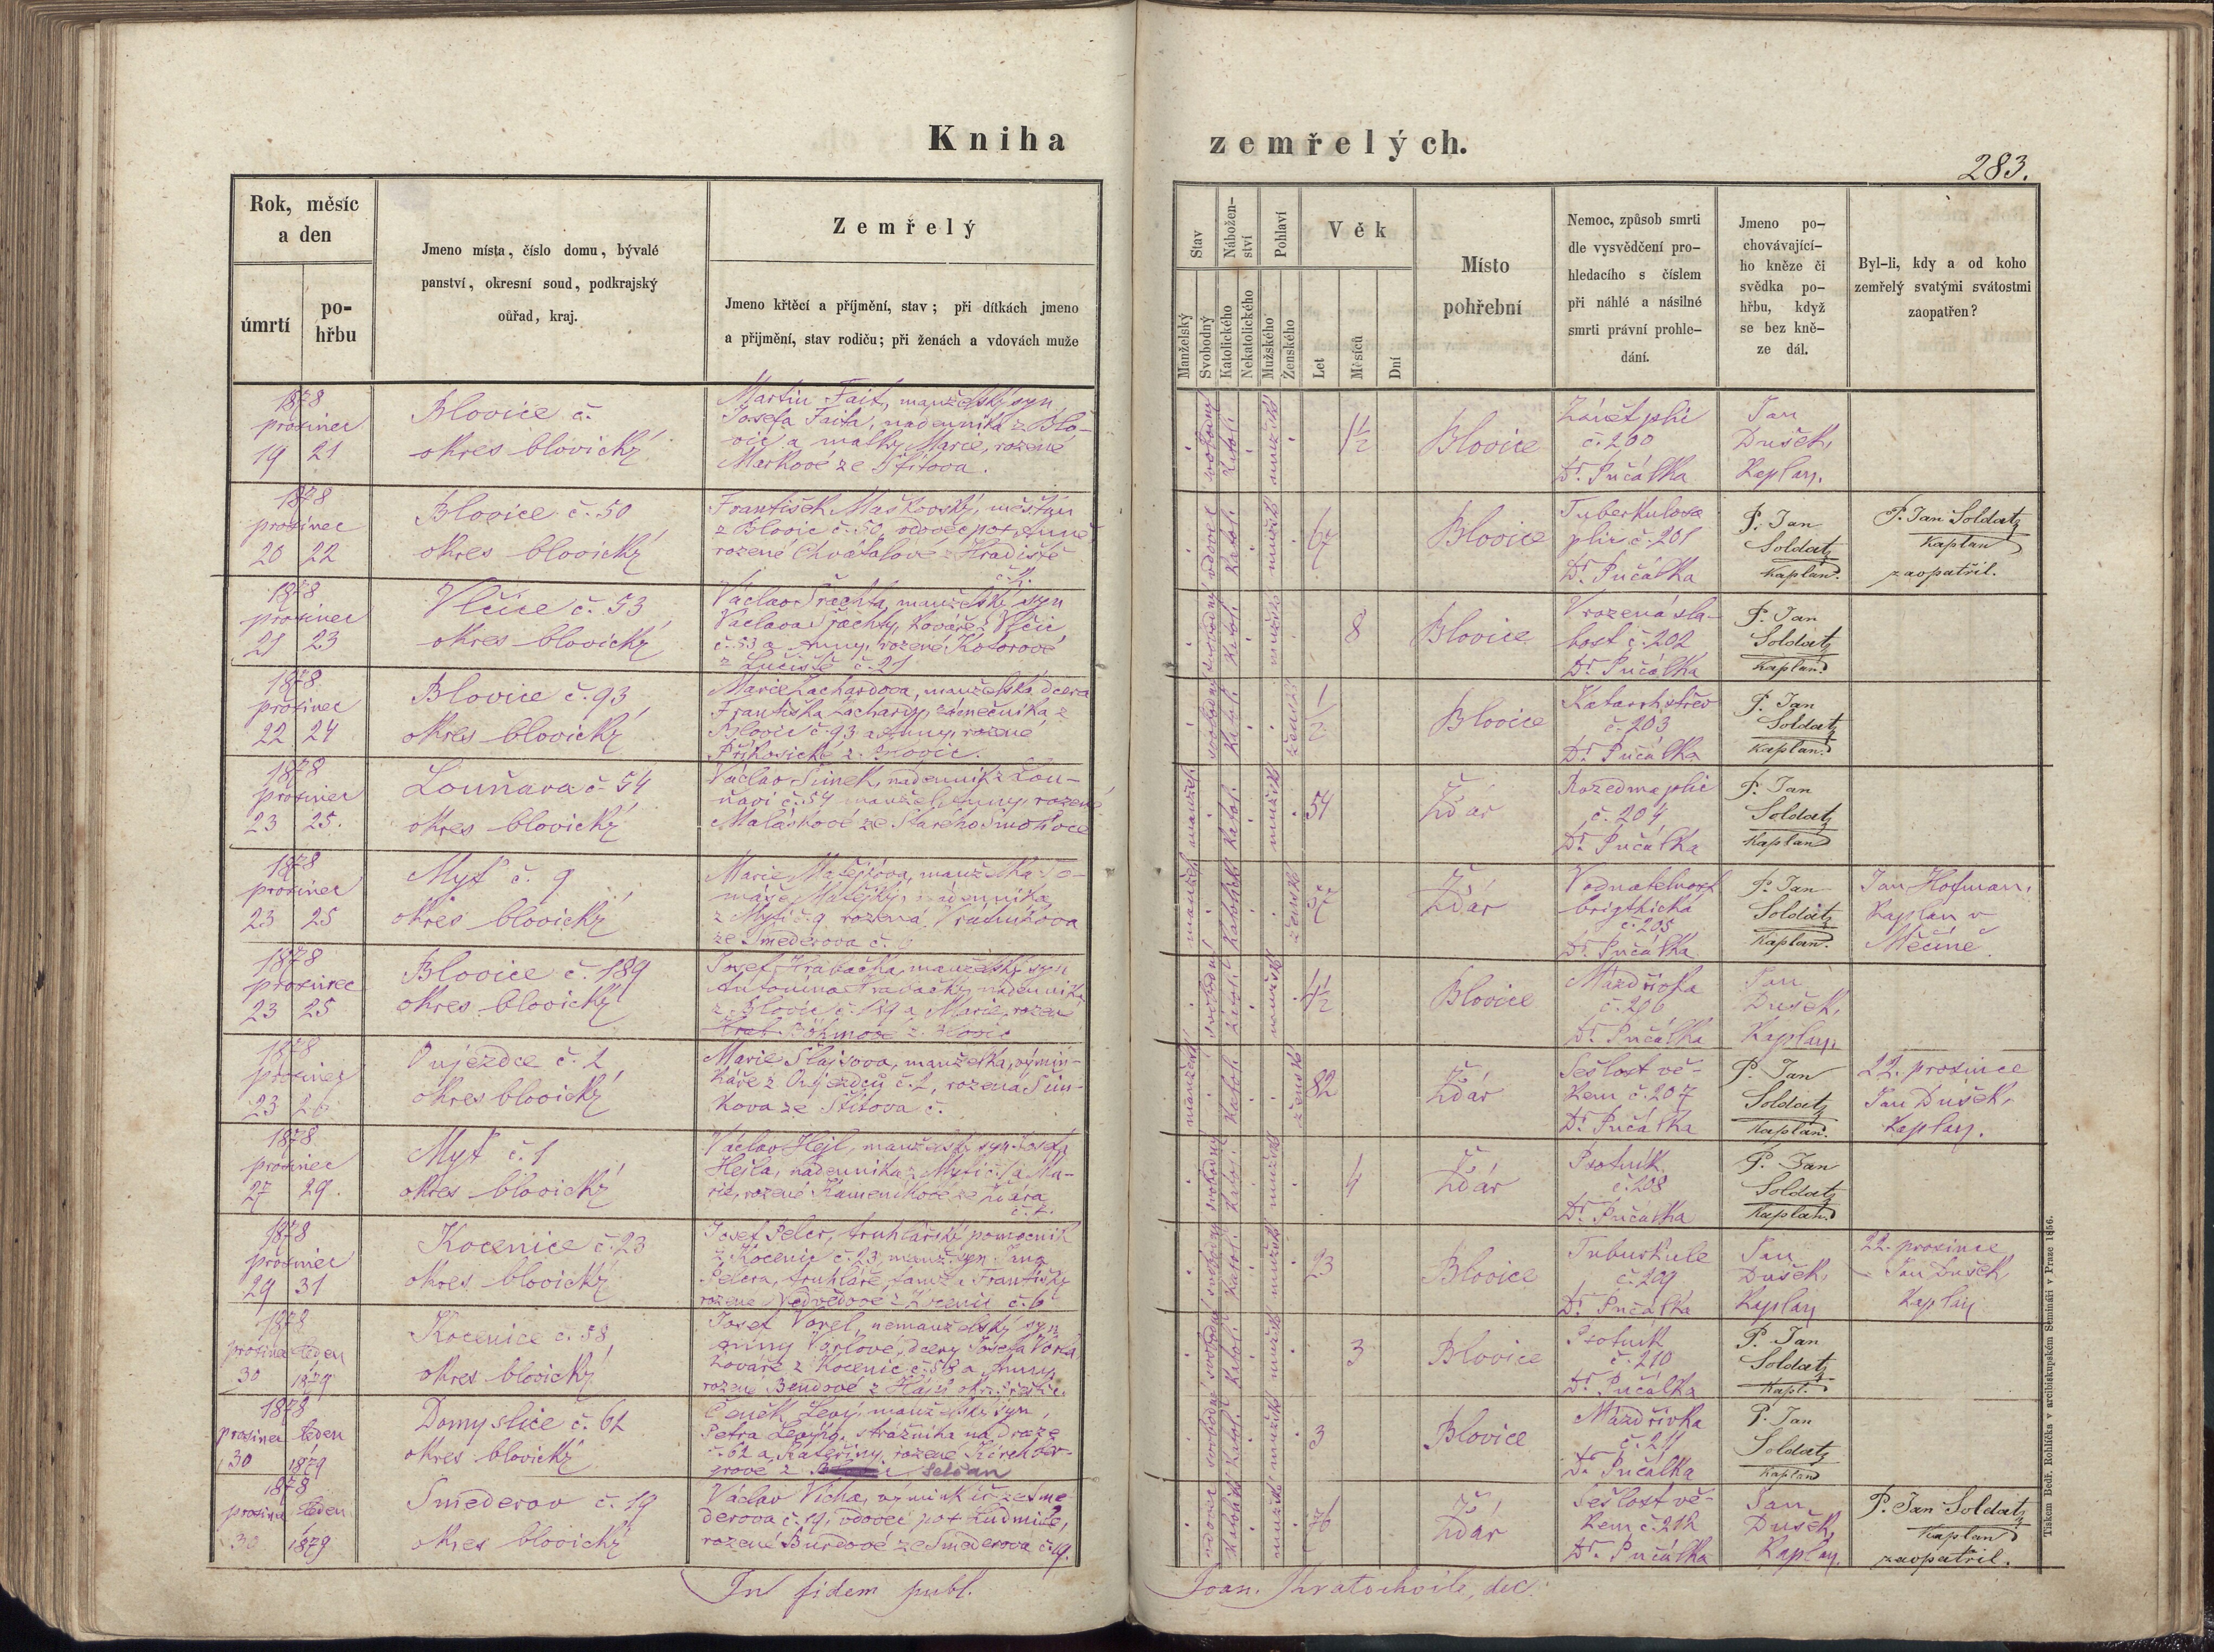 Kniha zemřelých.
283.
Rok, měsíc
a den
úmrtí
po-
hřbu
Jmeno místa, číslo domu, bývalé
panství, okresní soud, podkrajský
ouřad, kraj.
Zemřelý
Jmeno křtěcí a příjmění, stav; při dítkách jmeno
a přijmění, stav rodiču; při ženách a vdovách muže
Stav
Manželský
Svobodný
Nábožen-
ství
Katolického
Nekatolického
Pohlaví
Mužského
Ženského
Věk
Let
Měsíců
Dní
Místo
pohřební
Nemoc, způsob smrti
dle vysvědčení pro-
hledacího s číslem
při náhlé a násilné
smrti právní prohle-
dání.
Jmeno po-
chovávající-
ho kněze či
svědka po-
hřbu, když
se bez kně-
ze dál.
Byl-li, kdy a od koho
zemřelý svatými svátostmi
zaopatřen?
1878
prosinec
19 21
Blovice č.
okres blovický
Martin Fait, manželský syn
Josefa Faita, nadenníka z Blo-
vic a matky Marie, rozené
Markové ze Štítova.
svobodný
katol.
mužské
1½
Blovice
Zánět plic
č. 200
Dr. Pučálka
Jan
Dušek,
Kaplan.
1878
prosinec
20 22
Blovice č. 50
okres blovický
František Maškovský, měštan
z Blovic č. 50, vdovec po + Anně
rozené Chvátalové z Hradiště
vdovec
katol.
mužsk
67
Blovice
Tuberkulosa
plic č. 201
Dr. Pučálka
P. Jan
Soldat,
Kaplan.
P. Jan Soldat,
Kaplan
zaopatřil.
1878
prosinec
21 23
Vlčice č. 53
okres blovický
Václav Šrachta, manželský syn
Václava Šrachty, kováře z Vlčic
č. 53 a Anny, rozené Kotorové
č. 21
svobodný
katol.
mužské
8
Blovice
Vrozená sla-
bost č. 202
Dr. Pučálka
P. Jan
Soldat,
Kaplan
1878
prosinec
22 24
Blovice č. 93
okres blovický
Marie Zachardova, manželská dcera
Františka Zachardy, zámečníka z
Blovic č. 93 a Anny, rozené
z Blovic.
svobodný
katol.
ženské
½
Blovice
Katarrh střev
č. 203
Dr. Pučálka
P. Jan
Soldat,
Kaplan.
1878
prosinec
23 25.
Louňava č. 54
okres blovický
Václav Šimek, nadenník z Lou-
ňavi č. 54 manžel Anny, rozené
Maláskové ze Starého Smolivce
manžel.
katol.
mužsk
54
Ždár
Rozedma plic
č. 204
Dr. Pučálka
P. Jan
Soldat,
Kaplan
1878
prosinec
23 25
Myť č. 9
okres blovický
Marie Matějkova, manželka To-
máše Matějky, nádenníka
z Mytí č. 9 rozená
ze Smederova č. 6
manžel.
katolické
ženské
57
Ždár
Vodnatelnost
brigthická
č. 205
Dr. Pučálka
P. Jan
Soldat,
Kaplan.
Jan Hofman,
Kaplan v
Měčíně
1878
prosinec
23 25
Blovice č. 189
okres blovický
Josef Hrabačka, manželský syn
Antonína Hrabačky, nádenníka
z Blovic č. 189 a Marie, rozen
z Blovic
svobodný
katol.
mužské
4½
Blovice
Mázdřivka
č. 206
Dr. Pučálka
Jan
Dušek,
Kaplan.
1878
prosinec
23 26
Oujezdce č. 2
okres blovický
Marie Slajsova, manželka výmin-
káře z Oujezdců č. 2, rozená Šim-
kova ze Štítova č.
manžel.
katol.
ženské
82
Ždár
Sešlost vě-
kem č. 207
Dr. Pučálka
P. Jan
Soldat,
Kaplan.
22. prosince
Jan Dušek,
Kaplan.
1878
prosinec
27 29.
Myť č. 1
okres blovický
Václav Hejl, manželský syn Josefa
Hejla, nádenníka z Mytí č. 1 a Ma-
rie, rozené Kameníkové ze Ždára
svobodný
katol.
mužské
4
Ždár
Psotník
č. 208
Dr. Pučálka
P. Jan
Soldat,
Kaplan.
1878
prosinec
29 31
Kocenice č. 23
okres blovický
Josef Pelcr, truhlářský pomocník
z Kocenic č. 23, manž. syn Jana
Pelcra, truhláře tamž. a Františky
rozené Nedvědové z Kocenic č. 6
svobodný
katol.
mužské
23
Blovice
Tuberkule
č. 209
Dr. Pučálka
Jan
Dušek,
Kaplan
22. prosince
Jan Dušek,
Kaplan
1878
prosinec leden
30 1879
Kocenice č. 58
okres blovický
Josef Vorel, nemanželský syn
Anny Vorlové, dcery Josefa Vorla
kováře z Kocenic č. 58 a Anny
rozené Bendové z
svobodný
katol.
mužské
3
Blovice
Psotník
č. 210
Dr. Pučálka
P. Jan
Soldat,
Kapl.
1878
prosinec leden
30 1879
Domyslice č. 62
okres blovický
Čeněk Levý, manželský syn
Petra Levýho, strážníka na Draze
č. 62 a Kateřiny, rozené Kirchber-
grové z Selčan
svobodné
katol.
mužské
3
Blovice
Mázdřivka
č. 211
Dr. Pučálka
P. Jan
Soldat,
Kaplan
1878
prosinec leden
30 1879
Smederov č. 19
okres blovický
Václav Vícha, výminkář ze Sme-
derova č. 19, vdovec po + Ludmile,
rozené Burdové ze Smederova č. 19.
vdovec
katolické
mužské
76
Ždár
Sešlost vě-
kem č. 212
Dr. Pučálka
Jan
Dušek,
Kaplan.
P. Jan Soldat,
Kaplan
zaopatřil.
In fidem publ.
Joan. Kratochvile, dec.
Tiskem Bedř. Rohlíčka v arcibiskupském Semináři v Praze 1856.